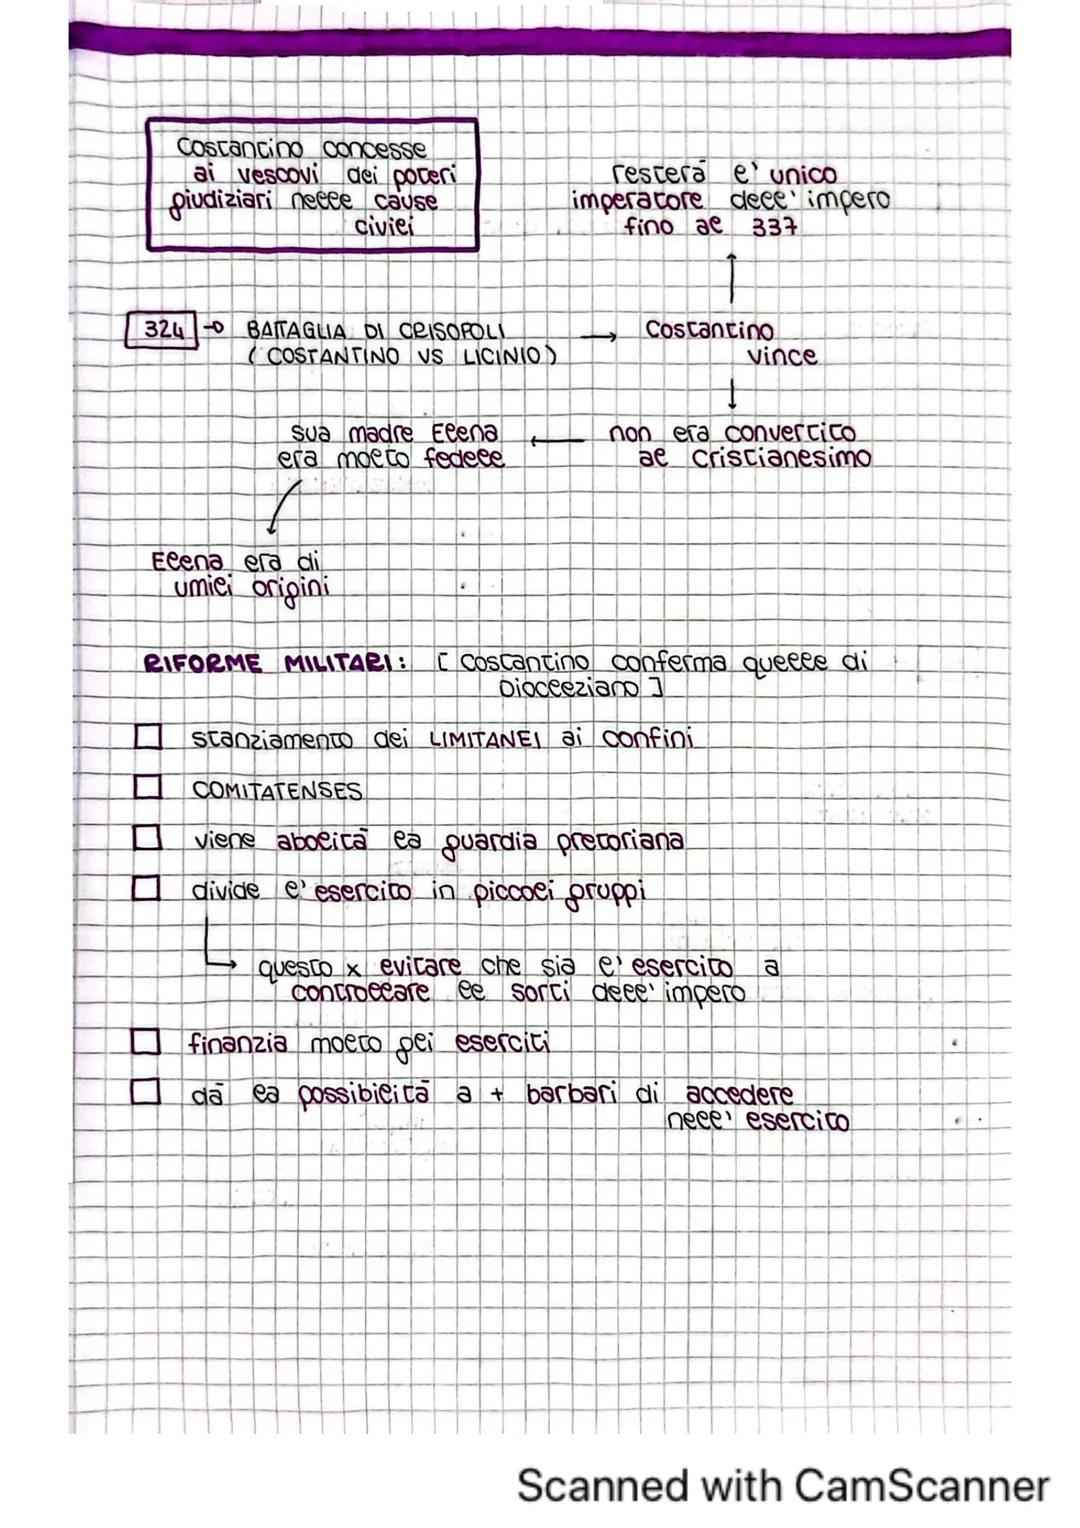 Costantino concesse
ai vescovi dei poteri
giudiziari nelle cause
civili
resterà l'unico
imperatore dell'impero
fino al 337
324 → BATTAGLIA DI CRISOPOLI → Costantino
(COSTANTINO VS LICINIO) vince
sua madre Elena ← non era convertito
era molto fedele al Cristianesimo
Elena era di
umili origini
RIFORME MILITARI: [Costantino conferma quelle di
Diocleziano]
□ stanziamento dei LIMITANEI ai confini
□ COMITATENSES
□ viene abolità la guardia pretoriana
□ divide l'esercito in piccoli gruppi
→ questo x evitare che sia l'esercito a
controllare le sorti dell'impero
□ finanzia molto gli eserciti
□ dà la possibilità a + barbari di accedere
nell'esercito
Scanned with CamScanner